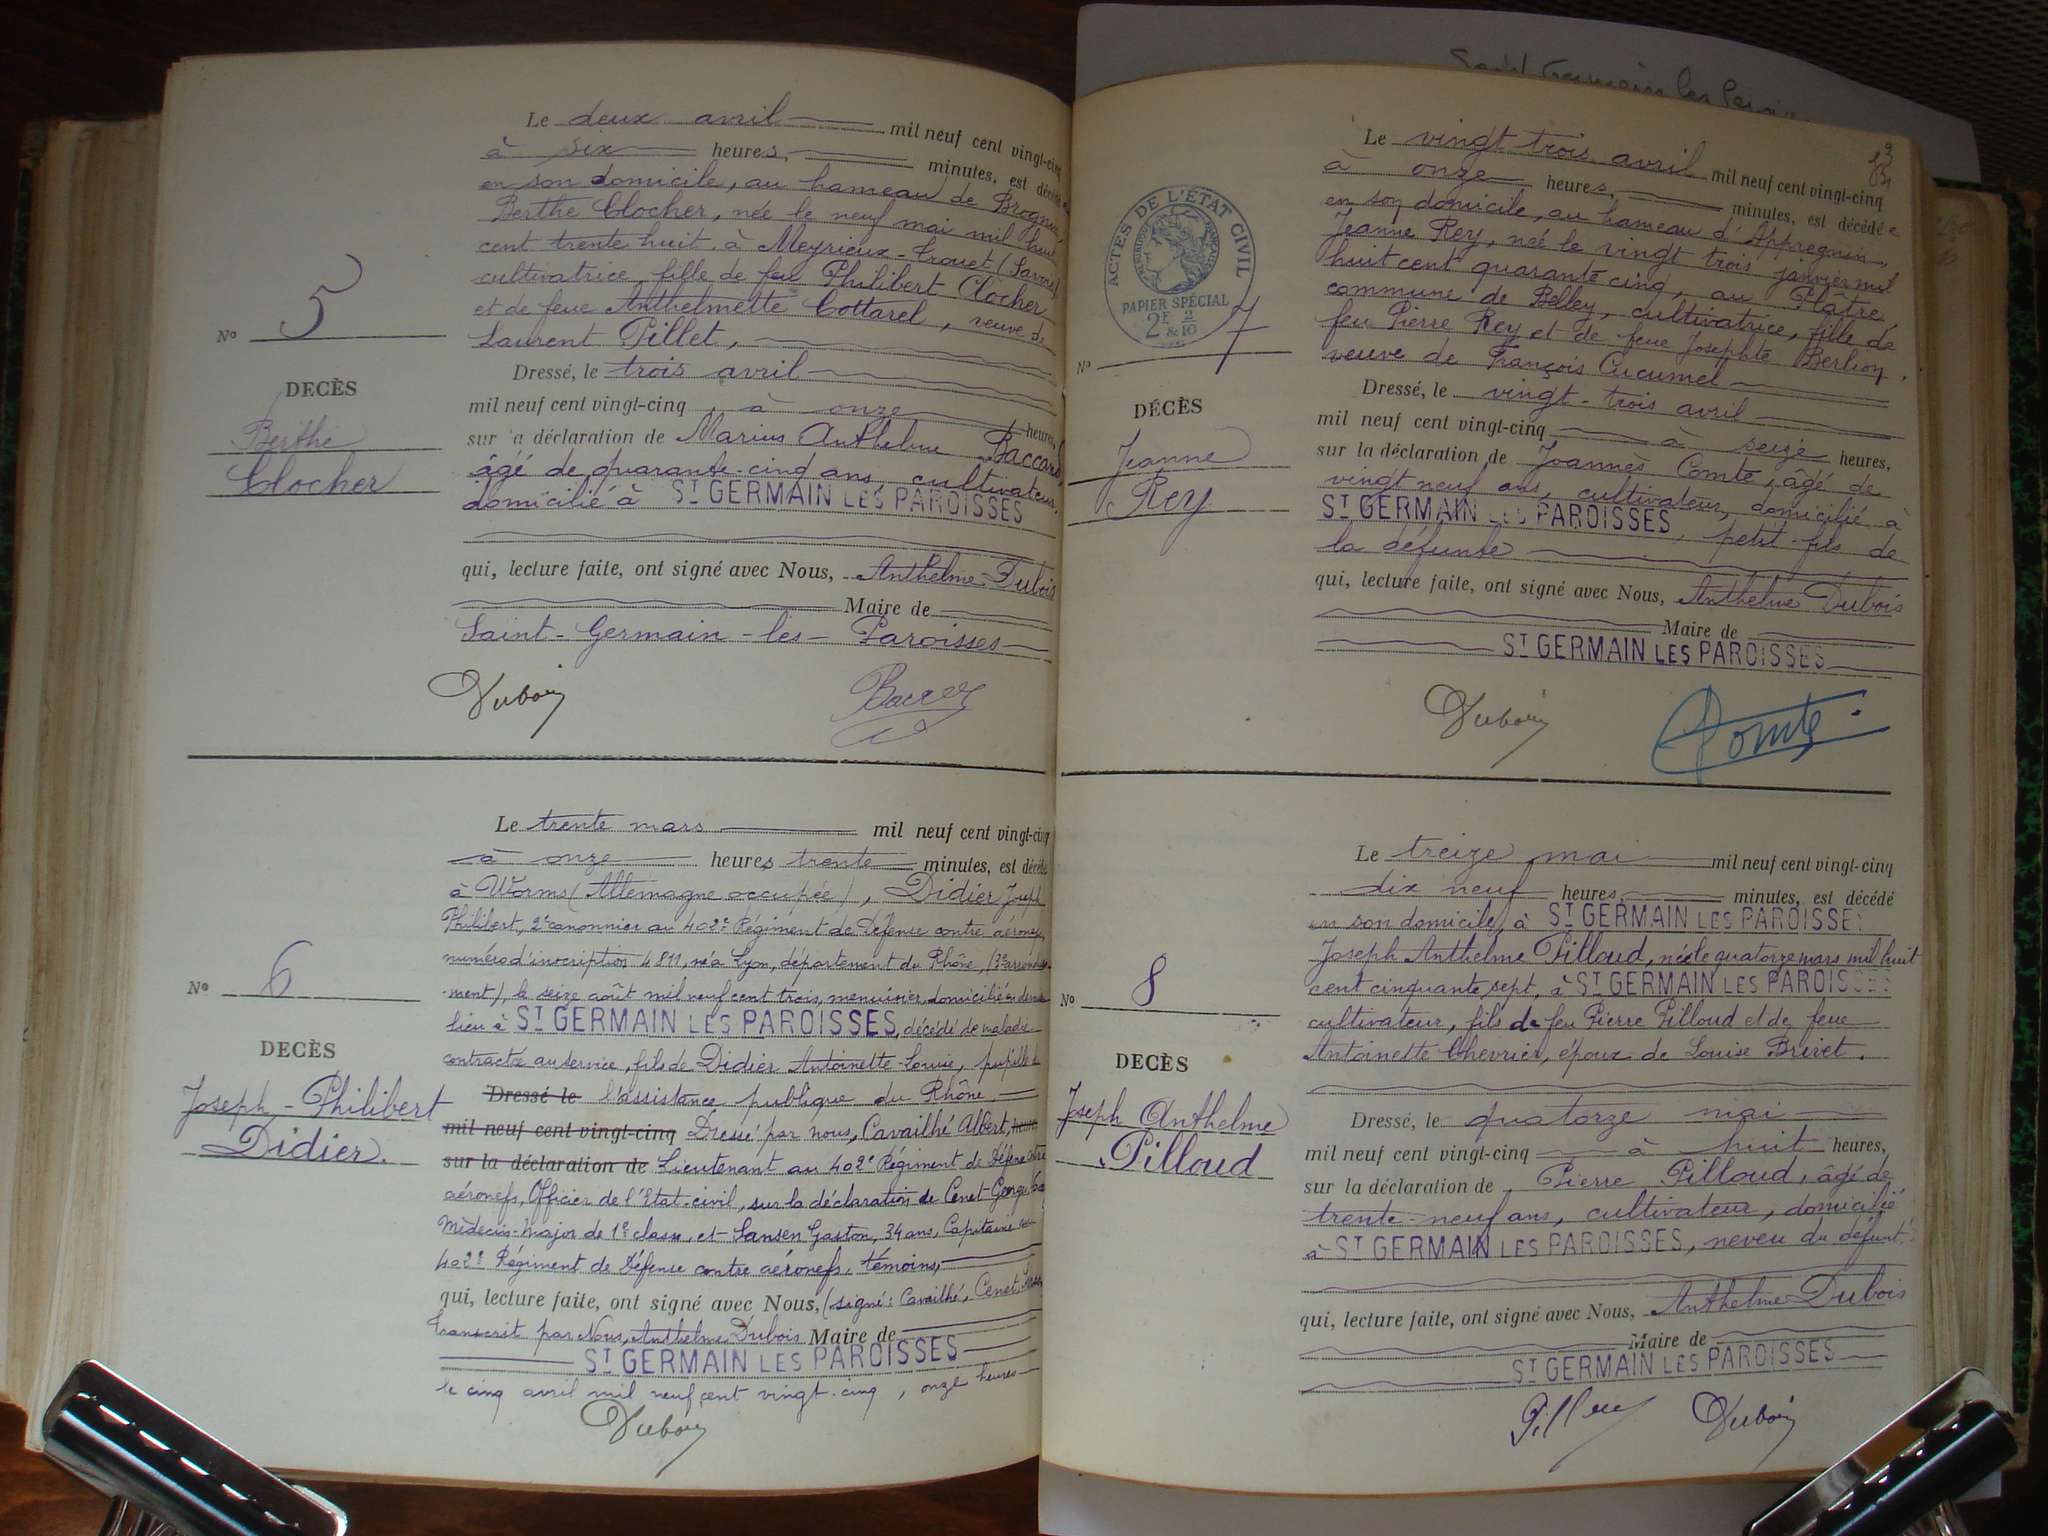 Le deux avril mil neuf cent vingt-cinq
à six heures, minutes, est décédée
en son domicile, au hameau de
Berthe Clocher, née le neuf mai mil huit
cent trente huit, à Meyrieux-Trouet (Savoie)
cultivatrice, fille de feu Philibert Clocher
et de feue Anthelmette Cottarel, veuve de
Laurent Pillet,
Nº 5
DECÈS
Berthe
Clocher
Dressé, le trois avril
mil neuf cent vingt-cinq, à onze heures,
sur la déclaration de Marius Anthelme
âgé de quarante-cinq ans, cultivateur,
domicilié à ST GERMAIN LES PAROISSES
qui, lecture faite, ont signé avec Nous, Anthelme Dubois
Maire de
Saint-Germain-les-Paroisses
Dubois
Le trente mars mil neuf cent vingt-cinq
à onze heures trente minutes, est décédé
à Worms (Allemagne occupée), Didier Joseph
Philibert, 2e canonnier au 402e Régiment de Défense contre aéronefs,
numéro d'inscription 4811, né à Lyon, département du Rhône, (3e arrondisse-
-ment), le seize août mil neuf cent trois, menuisier, domicilié en dernier
lieu à ST GERMAIN LES PAROISSES, décédé de maladie
contractée au service, fils de Didier Antoinette-Louise, pupille de
Dressé le l'assistance publique du Rhône.
mil neuf cent vingt-cinq Dressé par nous, Cavailhé Albert, heures
sur la déclaration de Lieutenant au 402e Régiment de Défense contre
aéronefs, Officier de l'Etat-civil, sur la déclaration de Cenet George
Médecin-Major de 1e classe, et Sansen Gaston, 34 ans, Capitaine au
402e Régiment de Défense contre aéronefs, témoins,
qui, lecture faite, ont signé avec Nous, (signé: Cavailhé, Cenet, Sansen
Transcrit par Nous, Anthelme Dubois Maire de
ST GERMAIN LES PAROISSES
le cinq avril mil neuf cent vingt-cinq, onze heures
Dubois
Nº 6
DECÈS
Joseph-Philibert
Didier.
Le vingt trois avril mil neuf cent vingt-cinq
à onze heures, minutes, est décédée
en son domicile, au hameau d'Appregnin,
Jeanne Rey, née le vingt trois janvier mil
huit cent quarante cinq, au Plâtre,
commune de Belley, cultivatrice, fille de
feu Pierre Rey et de feue Josephte Berlion,
veuve de François Cucumel
ACTES DE L'ÉTAT CIVIL
PAPIER SPÉCIAL
2F & 2/10
Nº 7
DÉCÈS
Jeanne
Rey
Dressé, le vingt-trois avril
mil neuf cent vingt-cinq à seize heures,
sur la déclaration de Joannès Comte, âgé de
vingt neuf ans, cultivateur, domicilié à
ST GERMAIN LES PAROISSES, petit-fils de
la défunte
qui, lecture faite, ont signé avec Nous, Anthelme Dubois
Maire de
ST GERMAIN LES PAROISSES
Dubois Comte
Le treize mai mil neuf cent vingt-cinq
dix neuf heures, minutes, est décédé
en son domicile, à ST GERMAIN LES PAROISSES
Joseph Anthelme Pilloud, né le quatorze mars mil huit
cent cinquante sept, à ST GERMAIN LES PAROISSES
cultivateur, fils de feu Pierre Pilloud et de feue
Antoinette Chevrier, époux de Louise Brevet.
Nº 8
DECÈS
Joseph Anthelme
Pilloud
Dressé, le quatorze mai
mil neuf cent vingt-cinq à huit heures,
sur la déclaration de Pierre Pilloud, âgé de
trente-neuf ans, cultivateur, domicilié
à ST GERMAIN LES PAROISSES, neveu du défunt
qui, lecture faite, ont signé avec Nous, Anthelme Dubois
Maire de
ST GERMAIN LES PAROISSES
Dubois